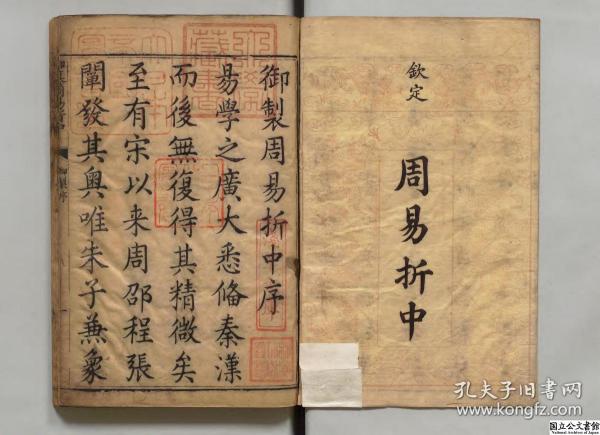 欽定
周易折中
御製周易折中序
易學之廣大悉備秦漢
而後無復得其精微矣
至有宋以来周邵程張
闡發其奥唯朱子兼象
孔夫子旧书网
www.kongfz.com
国立公文書館
National Archives of Japan